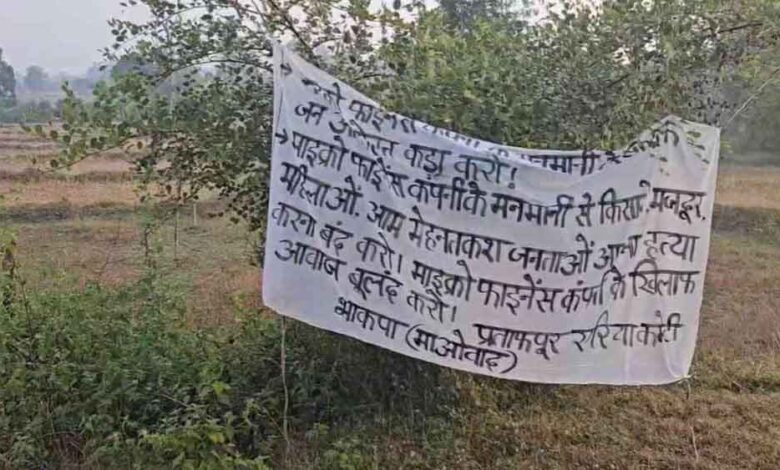 → फाइनेंस
जन आंदोलन कड़ा करो!
→ माइक्रो फाइनेंस कंपनी के मनमानी से किसान, मजदूर,
महिलाओं. आम मेहनतकश जनताओं आत्म हत्या
करना बंद करो। माइक्रो फाइनेंस कंपनी के खिलाफ
आवाज बूलंद करो।
भाकपा (माओवाद) प्रतापपूर एरिया कमेटी